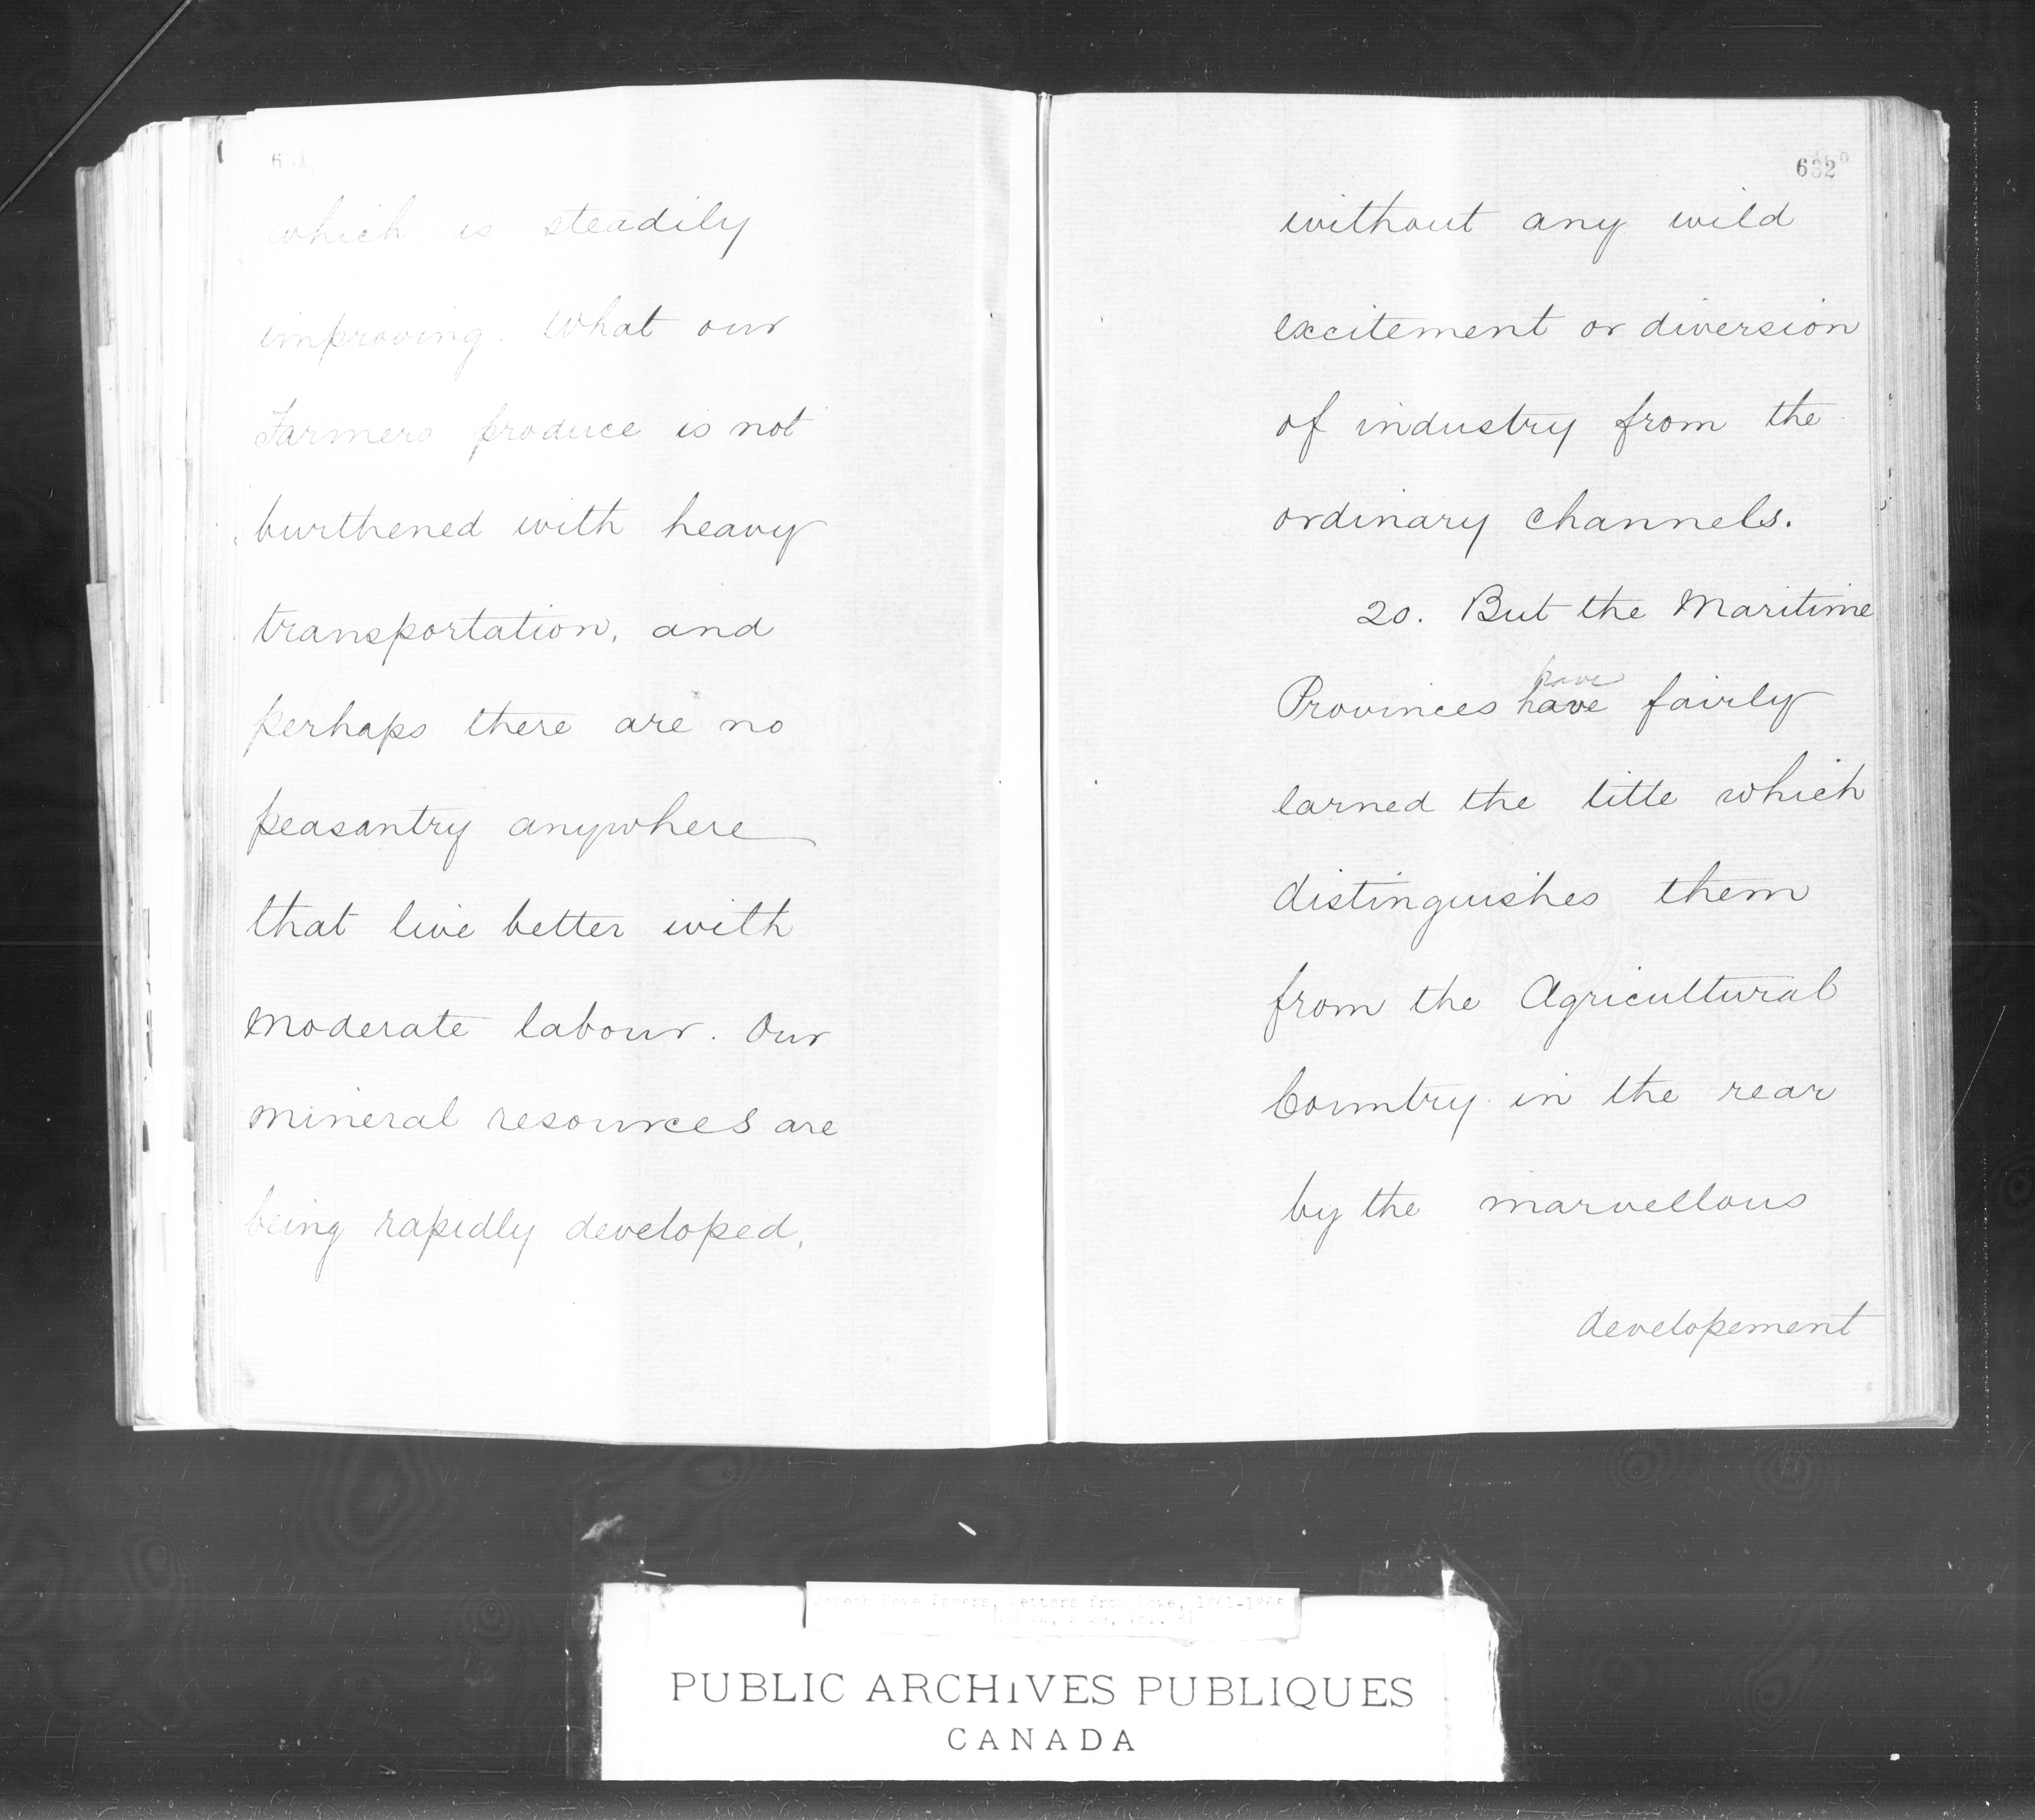 631
which is steadily
improving. What our
Farmers produce is not
burthened with heavy
transportation, and
perhaps there are no
peasantry anywhere
that live better with
moderate labour. Our
mineral resources are
being rapidly developed,
632
without any wild
excitement or diversion
of industry from the
ordinary channels.
20. But the Maritime
have
Provinces have fairly
earned the title which
distinguishes them
from the Agricultural
Country in the rear
by the marvellous
developement
Joseph Howe Papers, Letters from Howe, 1861-1866
PUBLIC ARCHIVES PUBLIQUES
CANADA